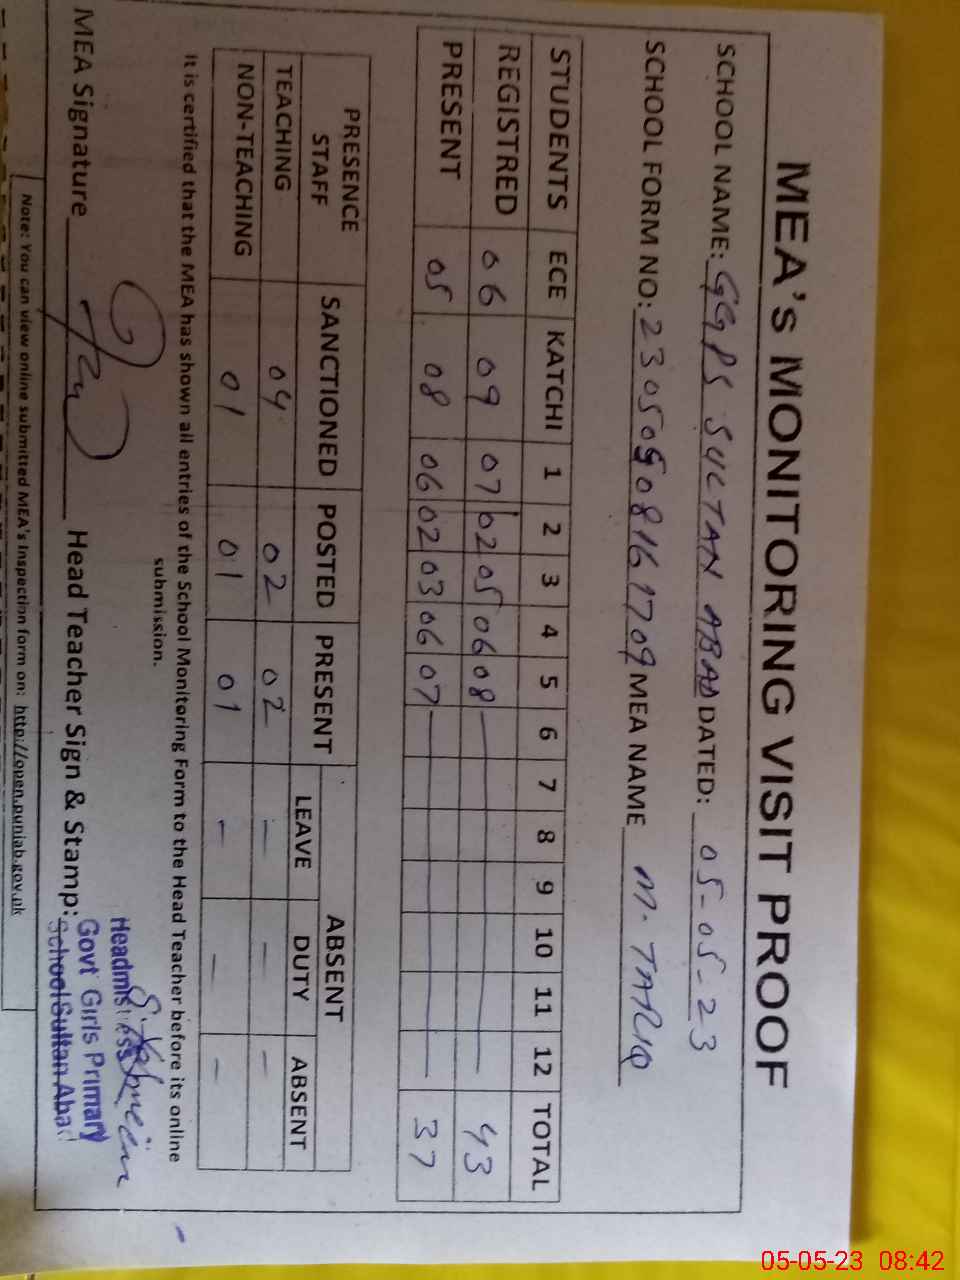 MEA's MONITORING VISIT PROOF
SCHOOL NAME: GGPS SULTAN ABAD DATED: 05-05-23
SCHOOL FORM NO: MEA NAME M. TARIQ
STUDENTS ECE KATCHI 1 2 3 4 5 6 7 8 9 10 11 12 TOTAL
REGISTRED 06 09 07 02 05 06 08 43
PRESENT 05 08 06 02 03 06 07 37
PRESENCE STAFF SANCTIONED POSTED PRESENT ABSENT
LEAVE DUTY ABSENT
TEACHING 04 02 02 – – –
NON-TEACHING 01 01 01 – – –
It is certified that the MEA has shown all entries of the School Monitoring Form to the Head Teacher before its online
submission.
MEA Signature Head Teacher Sign & Stamp:
Headmistress
Govt Girls Primary
School Sultan Abad
Note: You can view online submitted MEA's Inspection form on: http://open.punjab.gov.pk
05-05-23 08:42